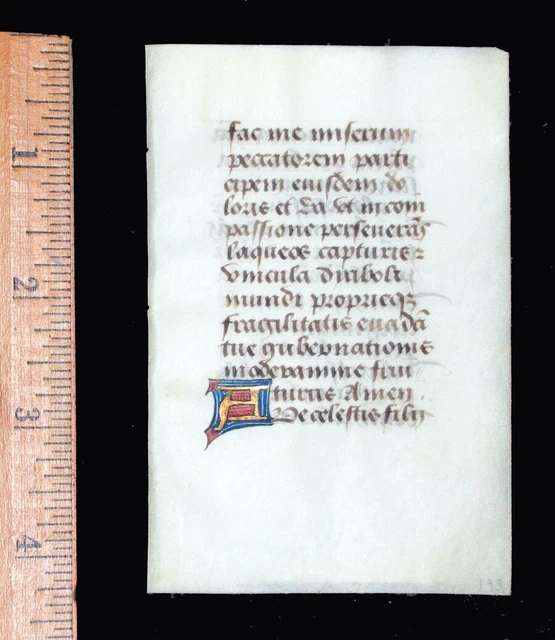 fac me miserum
peccatorem parti
cipem eiusdem do
loris et da ut in com
passione perseverās
laqueos capturis
vincula diaboli
mundi proprieqȝ
fragilitatis euadā
tue gubernationis
moderamine frui
turus Amen
Ave celestis filij
1
2
3
4